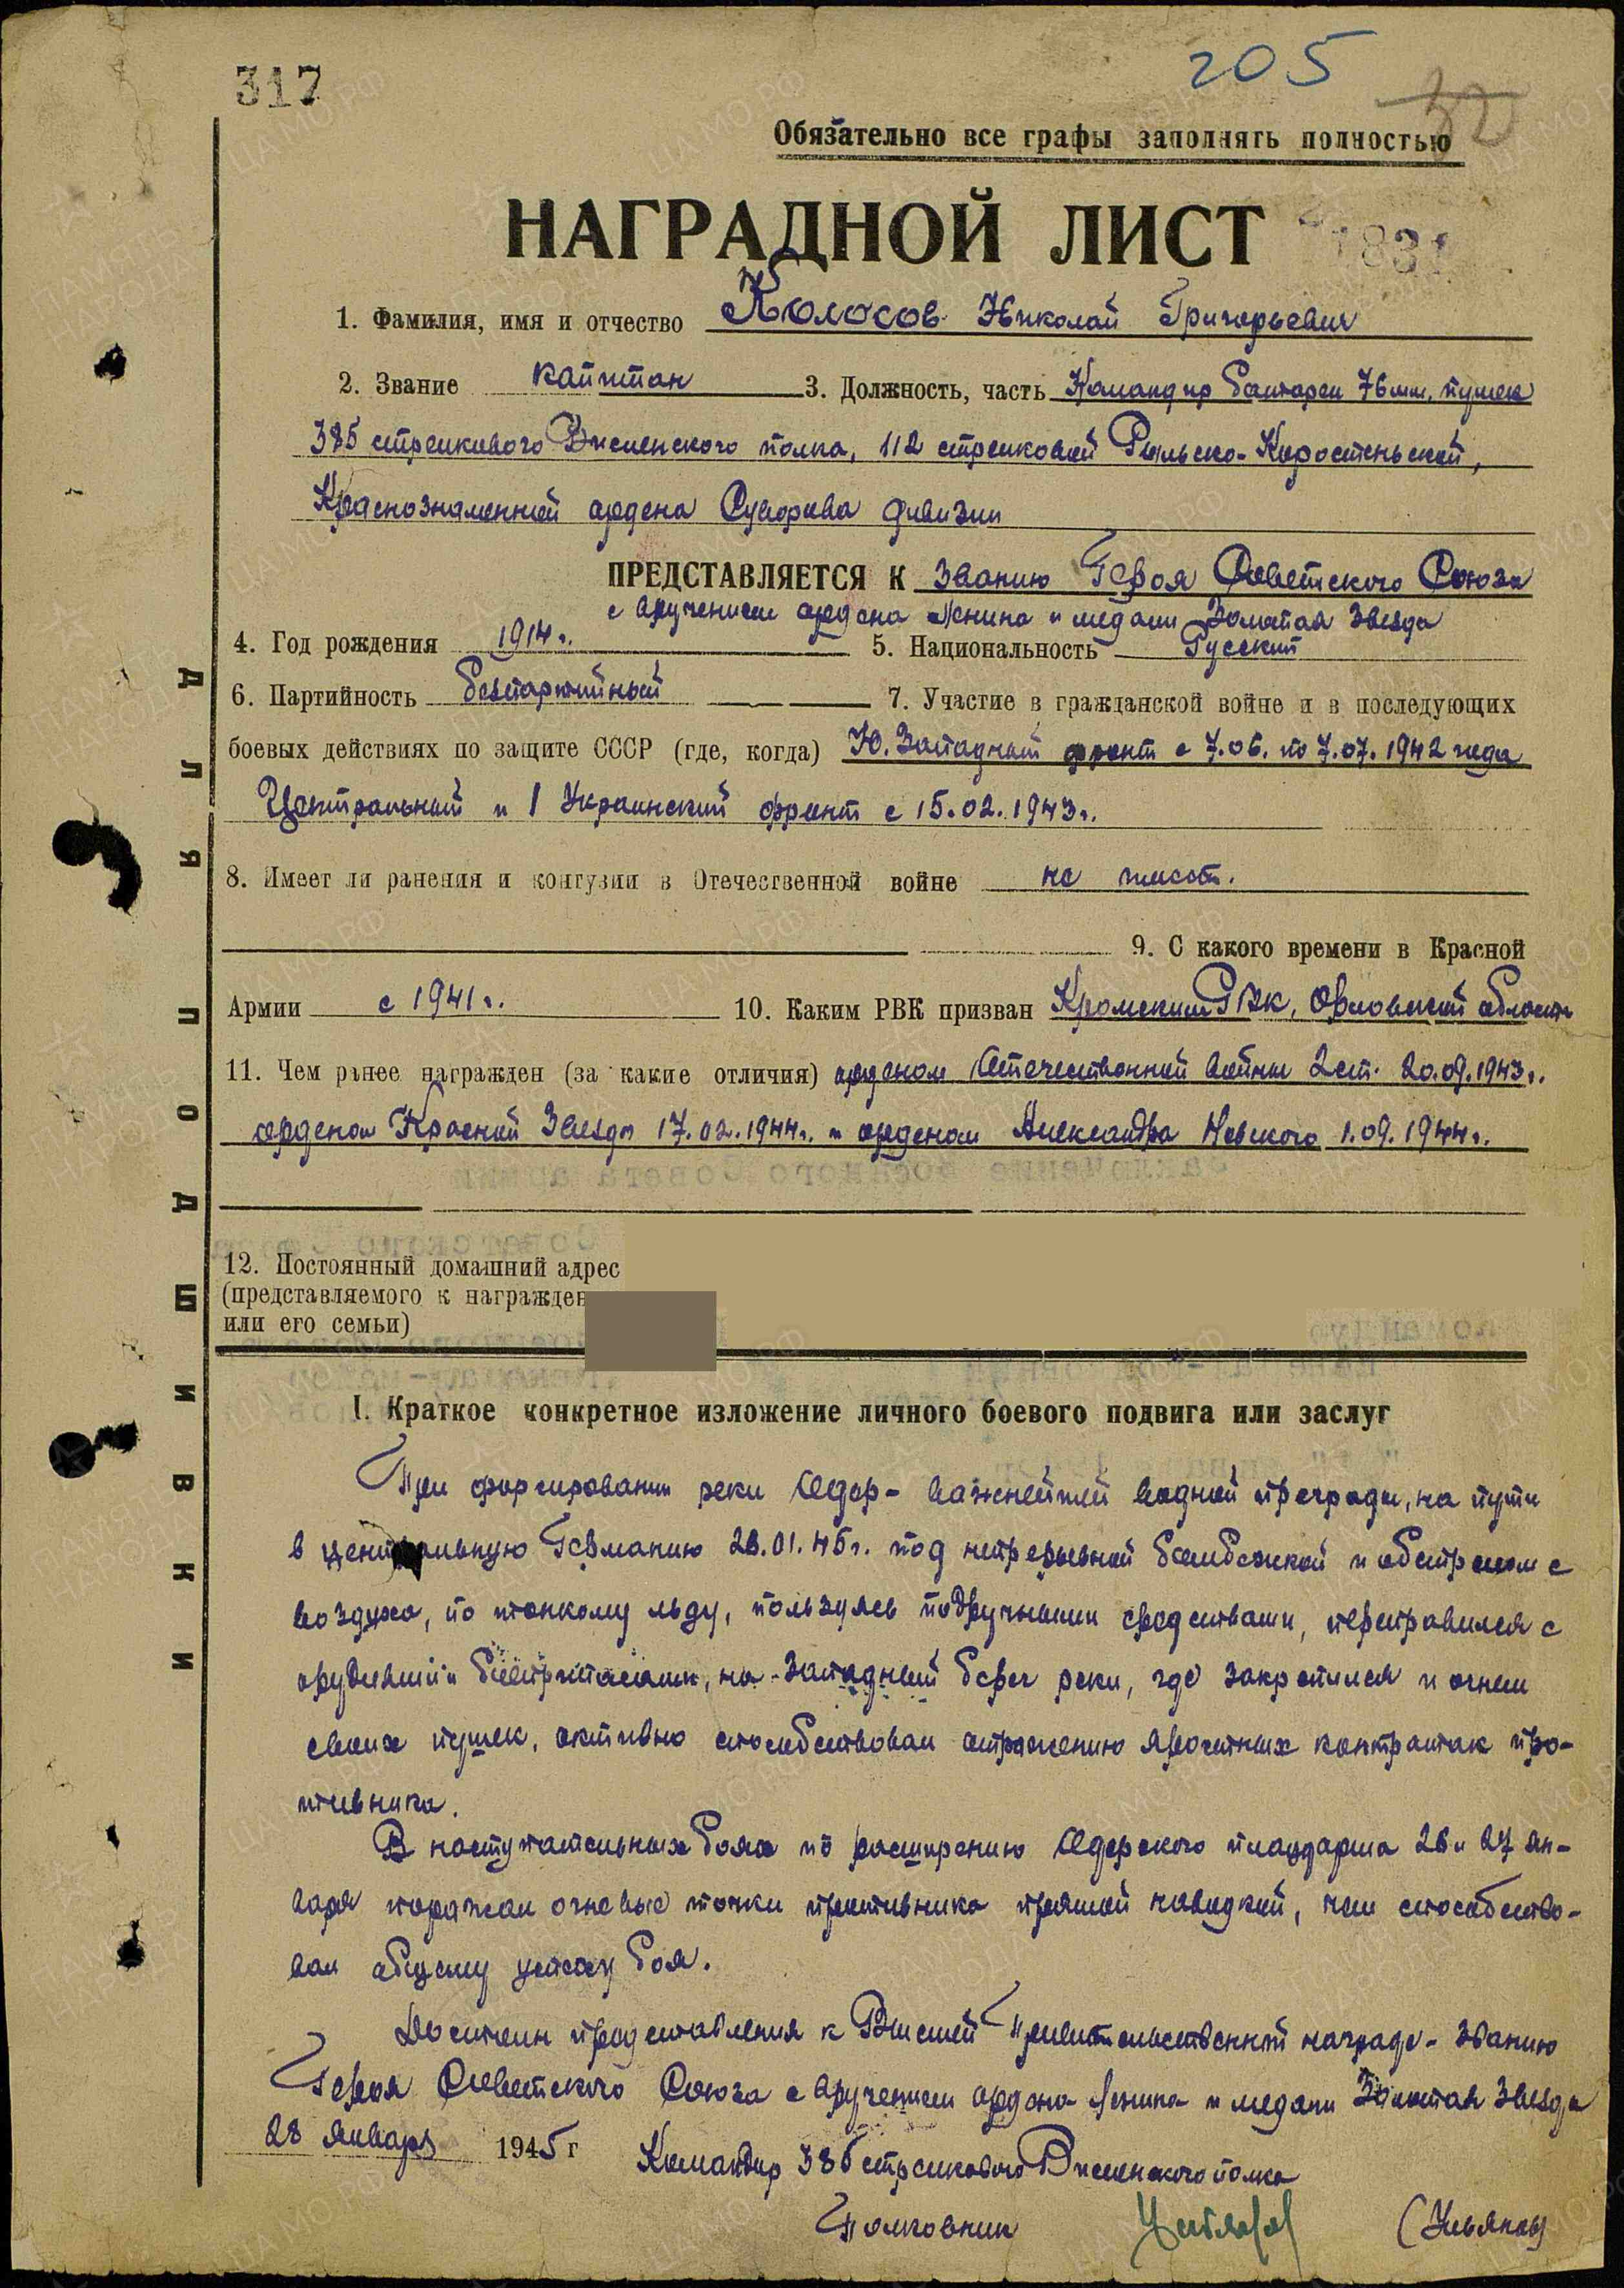 317
205
32
Обязательно все графы заполнять полностью
НАГРАДНОЙ ЛИСТ
1. Фамилия, имя и отчество Колосов Николай Григорьевич
2. Звание капитан 3. Должность, часть Командир батареи 76 мм. пушек
385 стрелкового Висленского полка, 112 стрелковой Рыльско-Коростеньской,
Краснознаменной ордена Суворова дивизии
ПРЕДСТАВЛЯЕТСЯ К званию Героя Советского Союза
с вручением ордена Ленина и медали Золотая Звезда
4. Год рождения 1914 г. 5. Национальность Русский
6. Партийность беспартийный 7. Участие в гражданской войне и в последующих
боевых действиях по защите СССР (где, когда) Ю. Западный фронт с 7.06. по 7.07. 1942 года
Центральный и 1 Украинский фронт с 15.02.1943 г.
8. Имеет ли ранения и контузии в Отечественной войне не имеет.
9. С какого времени в Красной
Армии с 1941 г. 10. Каким РВК призван Кромским РВК, Орловской области
11. Чем ранее награжден (за какие отличия) орденом Отечественной войны 2 ст. 20.09.1943 г.
орденом Красной Звезды 17.02.1944 г. и орденом Александра Невского 1.09.1944 г.
12. Постоянный домашний адрес
(представляемого к награжден
или его семьи)
I. Краткое конкретное изложение личного боевого подвига или заслуг
При форсировании реки Одер - важнейшей водной преграды, на пути
в центральную Германию 28.01.45 г. под непрерывной бомбежкой и обстрелом с
воздуха, по тонкому льду, пользуясь подручными средствами, переправился с
орудиями и боеприпасами, на Западный берег реки, где закрепился и огнем
своих пушек, активно способствовал отражению яростных контратак про-
тивника.
В наступательных боях по расширению Одерского плацдарма 26 и 27 ян-
варя поражал огневые точки противника прямой наводкой, чем способство-
вал общему успеху боя.
Достоин представления к Высшей Правительственной награде - званию
Героя Советского Союза с вручением ордена Ленина и медали Золотая Звезда
28 Января 1945 г Командир 385 стрелкового Висленского полка
Полковник (Ульянов)
ДЛЯ ПОДШИВКИ